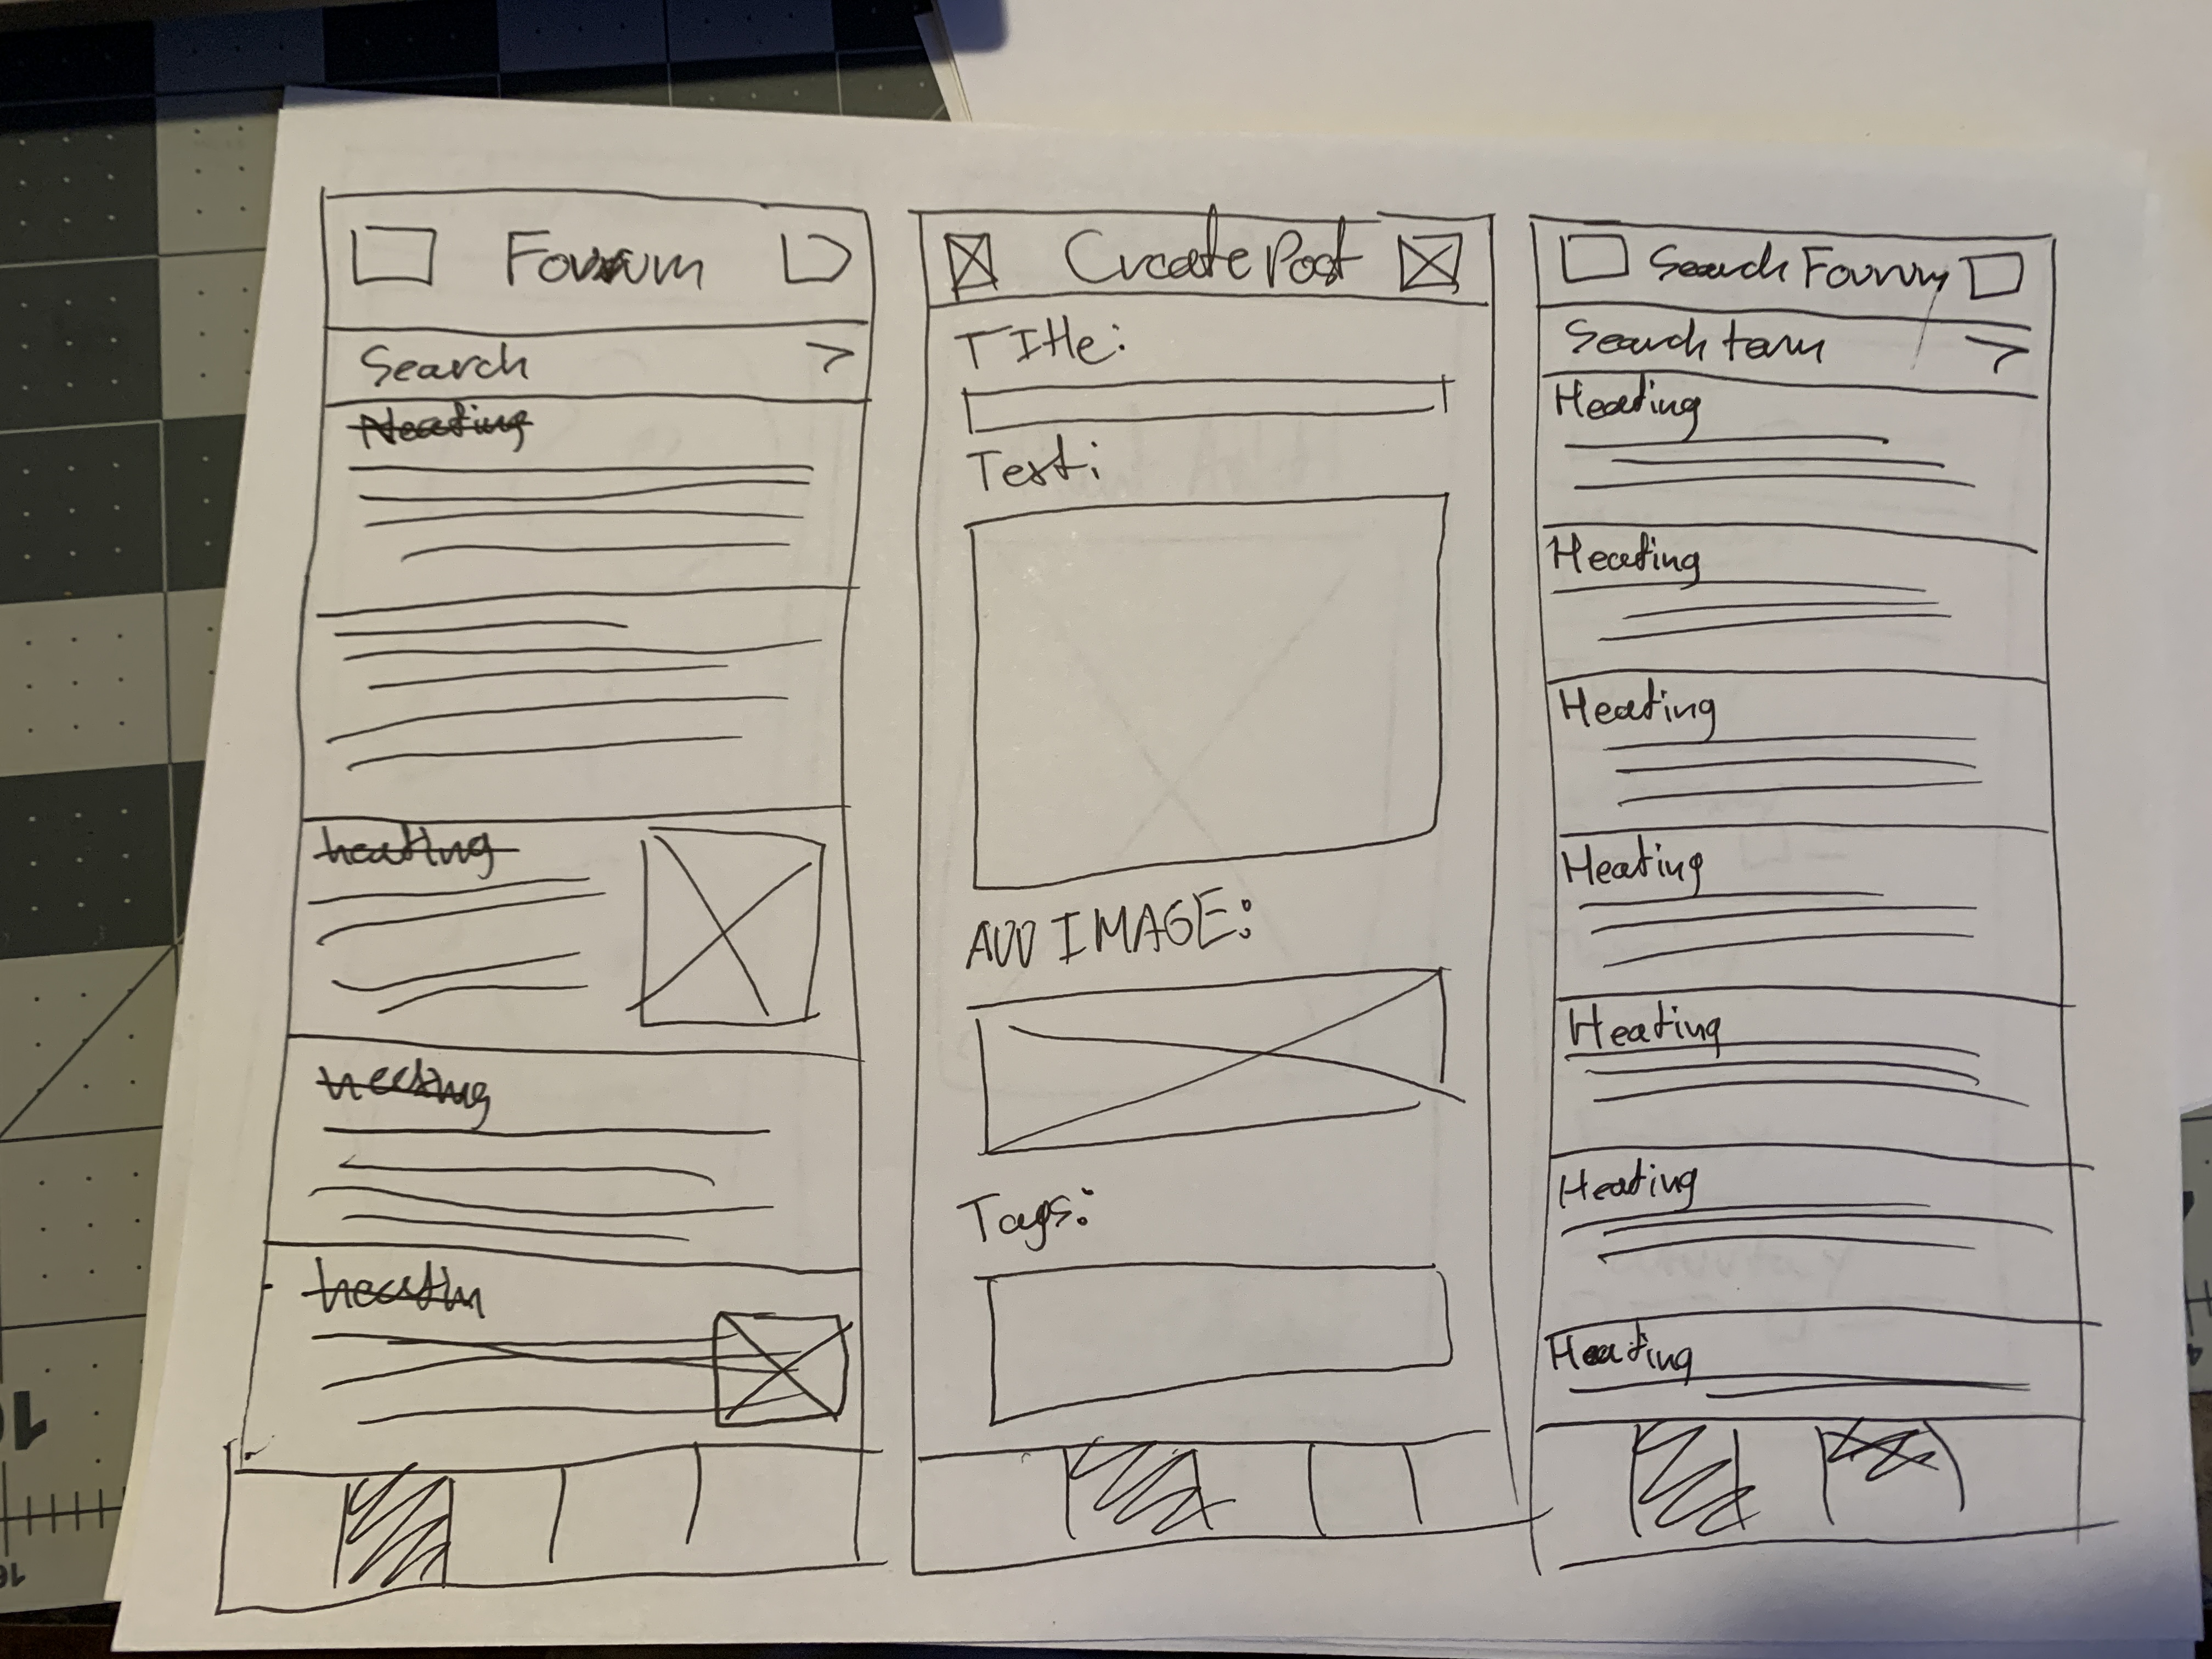 Forum
Search >
Heating
heating
heating
heatin
Create Post
TItle:
Text:
ADD IMAGE:
Tags:
Search Forum
Search term >
Heating
Heating
Heating
Heating
Heating
Heating
Heating